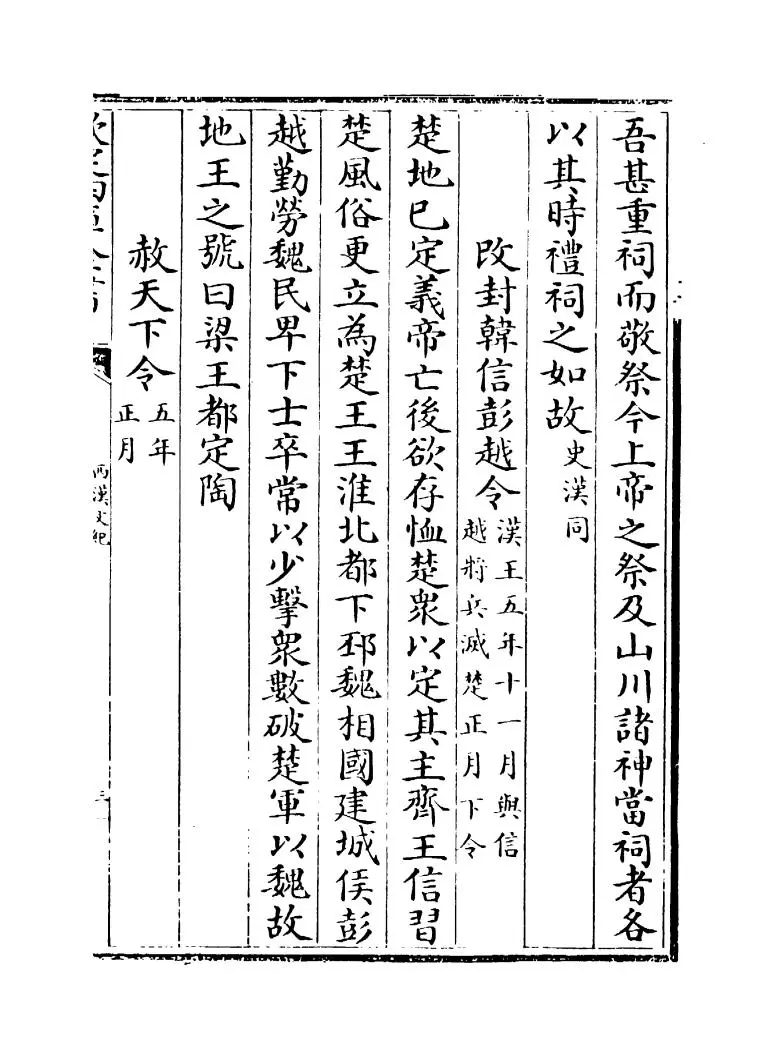 吾甚重祠而敬祭今上帝之祭及山川諸神當祠者各
以其時禮祠之如故史漢同
改封韓信彭越令漢王五年十一月與信
越將兵滅楚正月下令
楚地已定義帝亡後欲存恤楚衆以定其主齊王信習
楚風俗更立為楚王王淮北都下邳魏相國建城侯彭
越勤勞魏民卑下士卒常以少擊衆數破楚軍以魏故
地王之號曰梁王都定陶
赦天下令五年
正月
西漢文紀
三